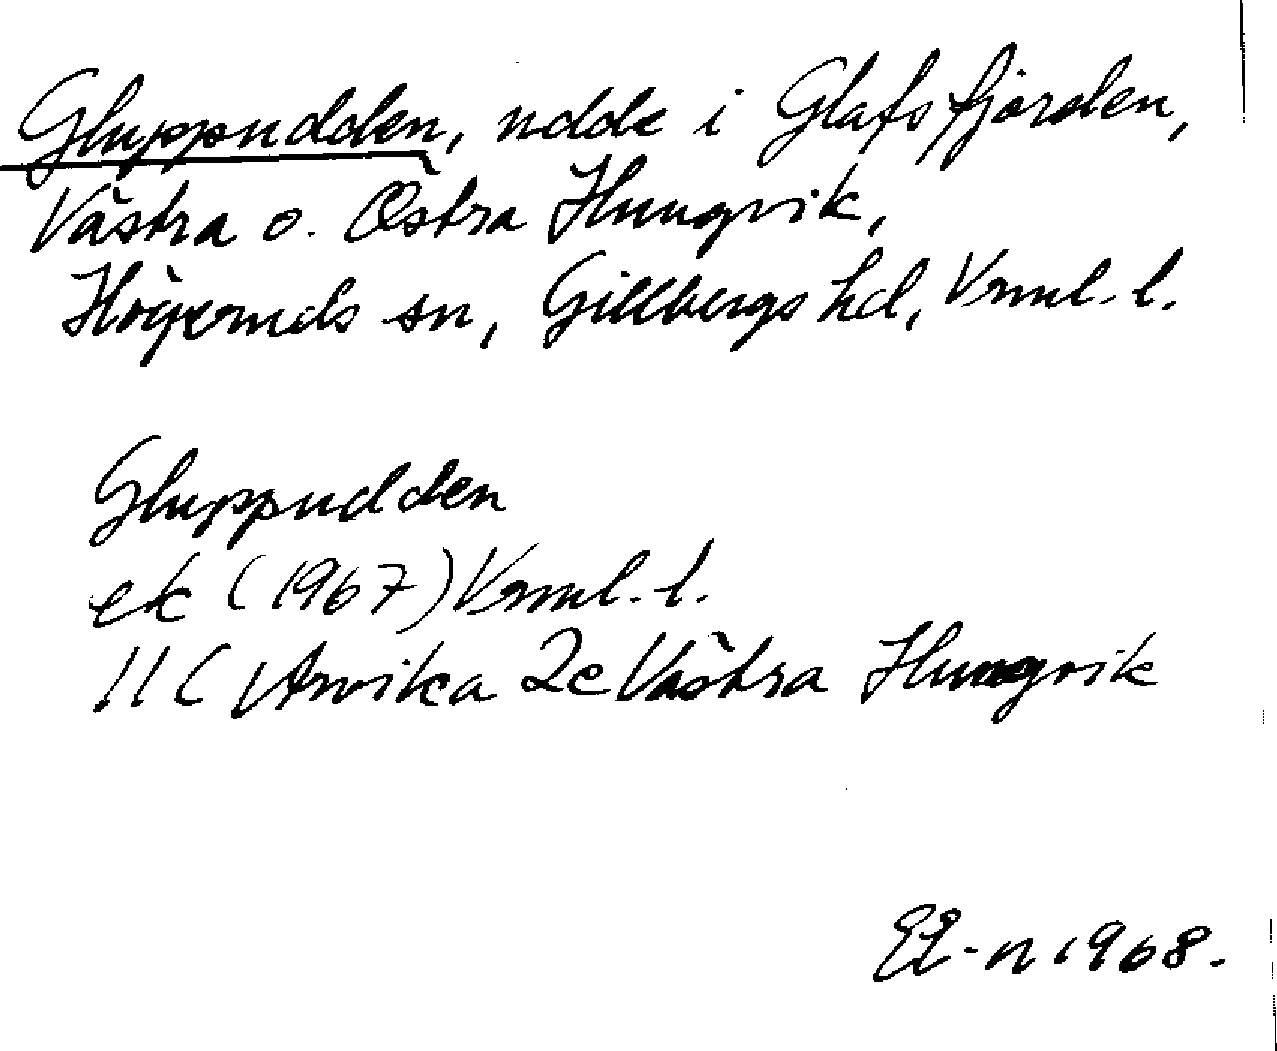 Gluppudden, udde i Glafsfjorden,
Västra o. Östra Hungvik,
Högeruds sn, Gillbergs hd, Vrml. l.
Gluppudden
ek (1967) Vrml. l.
11 C Arvika 2c Västra Hungvik
1968.